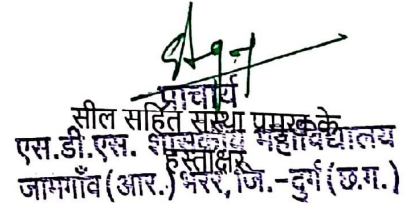 प्राचार्य
सील सहित संस्था प्रमुख के
एस.डी.एस. शासकीय महाविद्यालय
हस्ताक्षर
जामगाँव (आर.) भरर, जि.-दुर्ग (छ.ग.)